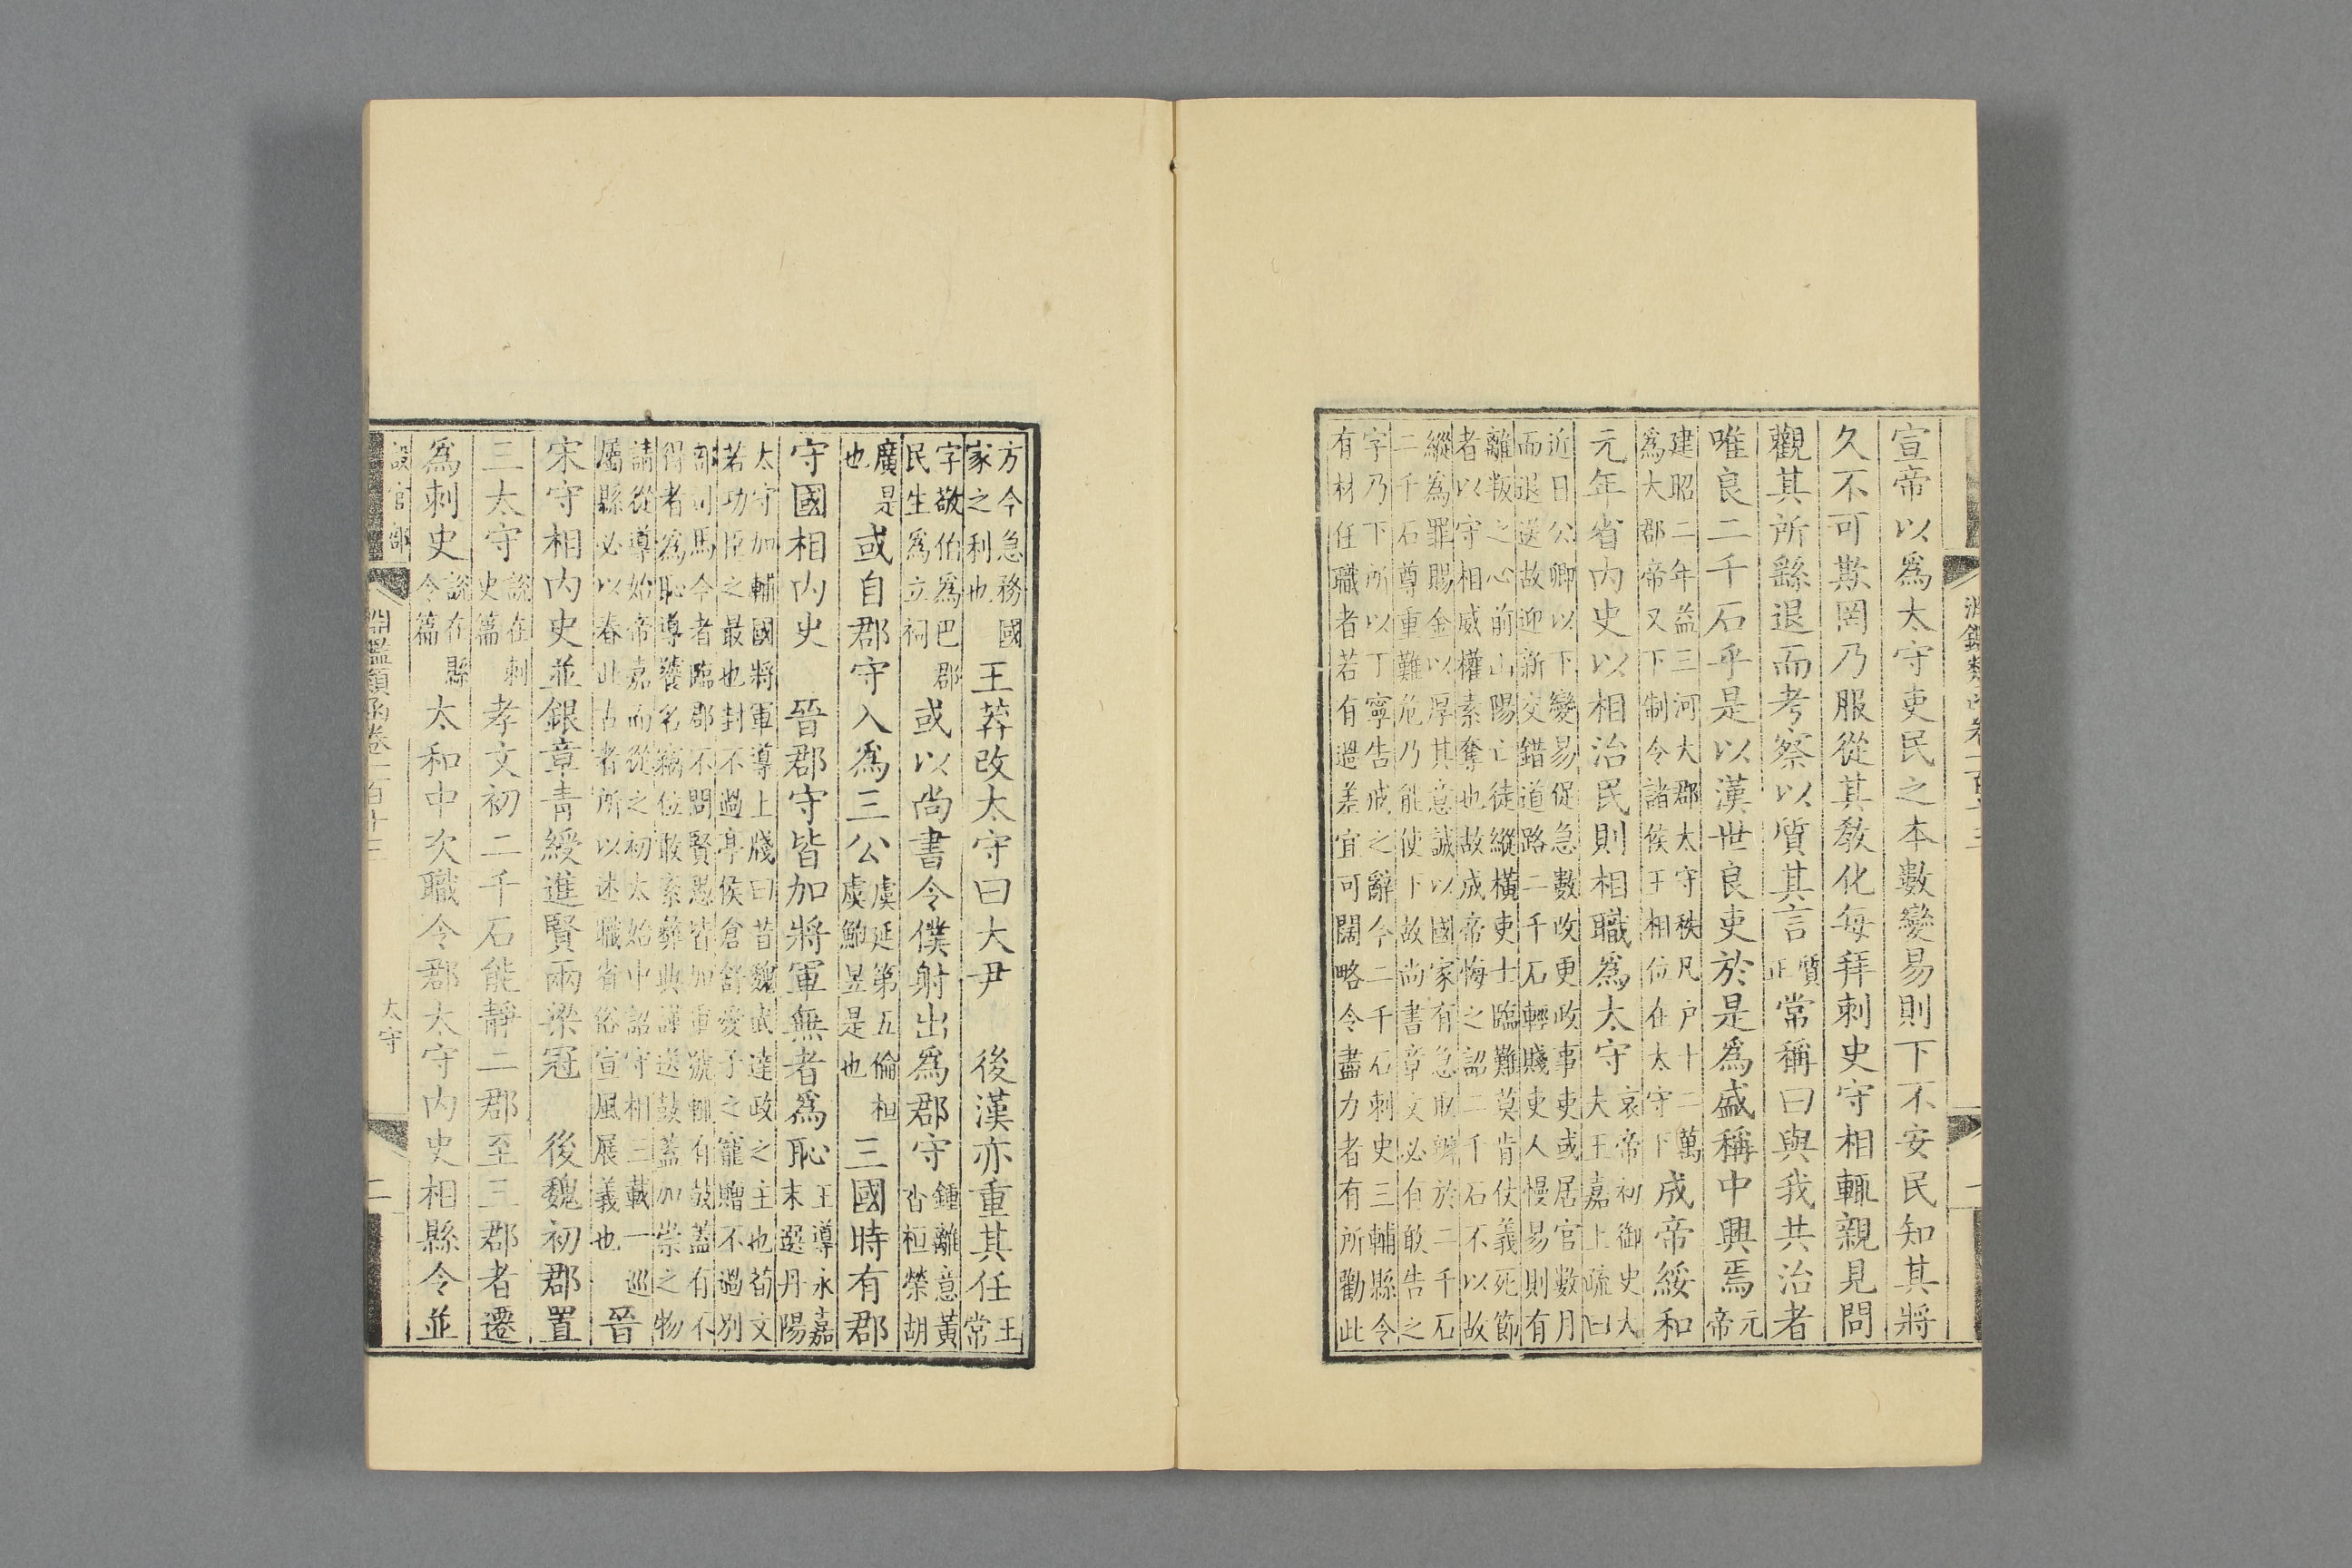 宣帝以爲太守吏民之本數變易則下不安民知其將
久不可欺罔乃服從其教化每拜刺史守相輒親見問
觀其所繇退而考察以質其言質正常稱曰與我共治者
唯良二千石乎是以漢世良吏於是爲盛稱中興焉元帝
建昭二年益三河大郡太守秩凡戶十二萬
爲大郡帝又下制令諸侯王相位在太守下成帝綏和
元年省內史以相治民則相職爲太守哀帝初御史大
夫王嘉上疏曰
近日公卿以下變易促急數改更政事吏或居官數月
而退送故迎新交錯道路二千石輕賤吏人慢易則有
離叛之心前山陽亡徒縱橫吏士臨難莫肯仗義死節
者以守相威權素奪也故成帝悔之詔二千石不以故
縱爲罪賜金以厚其意誠以國家有急取辦於二千石
二千石尊重難危乃能使下故尚書章文必有敢告之
字乃下所以丁寧告戒之辭今二千石刺史三輔縣令
有材任職者若有過差宜可闊略令盡力者有所勸此
方今急務國
家之利也王莽改太守曰大尹 後漢亦重其任王常
字敬伯爲巴郡
民生爲立祠或以尚書令僕射出爲郡守鍾離意黃
香桓榮胡
廣是
也或自郡守入爲三公虞延第五倫桓
虞鮑昱是也三國時有郡
守國相內史 晉郡守皆加將軍無者爲恥王導永嘉
末遷丹陽
太守加輔國將軍導上牋曰昔魏武達政之主也荀文
若功臣之最也封不過亭侯倉舒愛子之寵贈不過別
部司馬今者臨郡不問賢愚皆加重號輒有鼓蓋有不
得者爲恥導饕名竊位敢紊彝典謹送鼓蓋加崇之物
請從導始帝嘉而從之初太始中詔守相三載一巡
屬縣必以春此古者所以述職省俗宣風展義也晉
宋守相內史並銀章青綬進賢兩梁冠 後魏初郡置
三太守說在刺
史篇孝文初二千石能靜二郡至三郡者遷
爲刺史說在縣
令篇太和中次職令郡太守內史相縣令並
設官部 淵鑑類函卷一百十三 太守 二